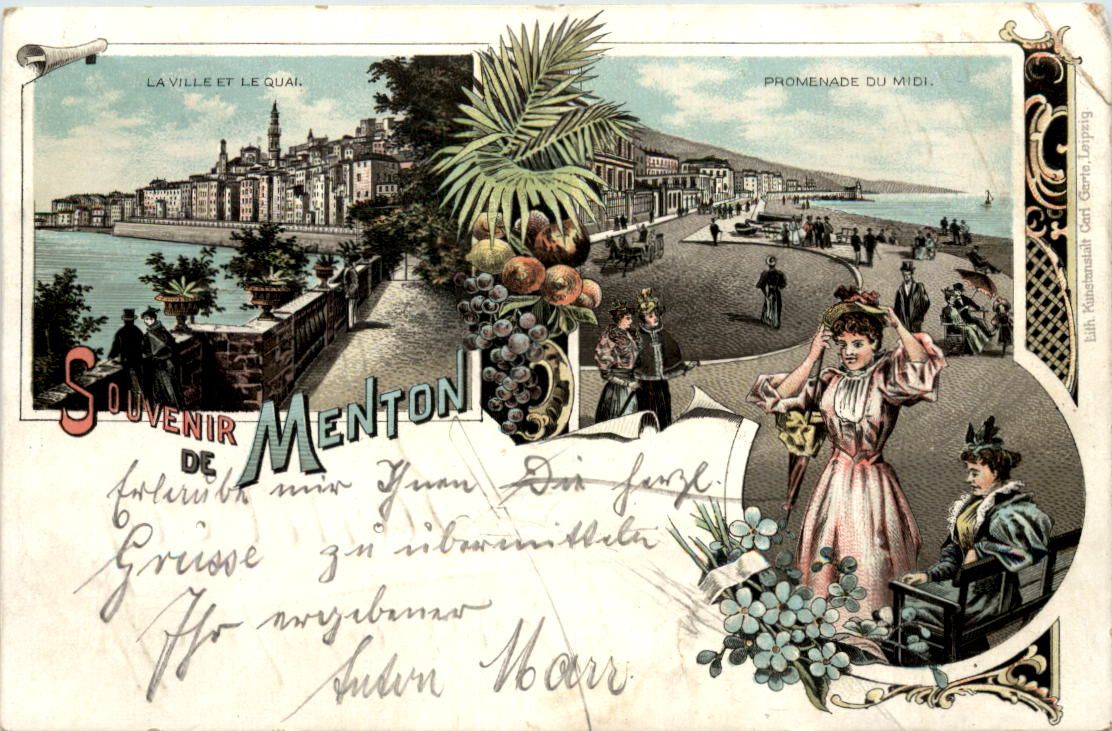 LA VILLE ET LE QUAI.
PROMENADE DU MIDI.
SOUVENIR
DE MENTON
Erlaube mir Ihnen Die herzl.
Grüsse zu übermitteln
Ihr ergebener
Anton Marr.
Lith. Kunstanstalt Carl Garte, Leipzig